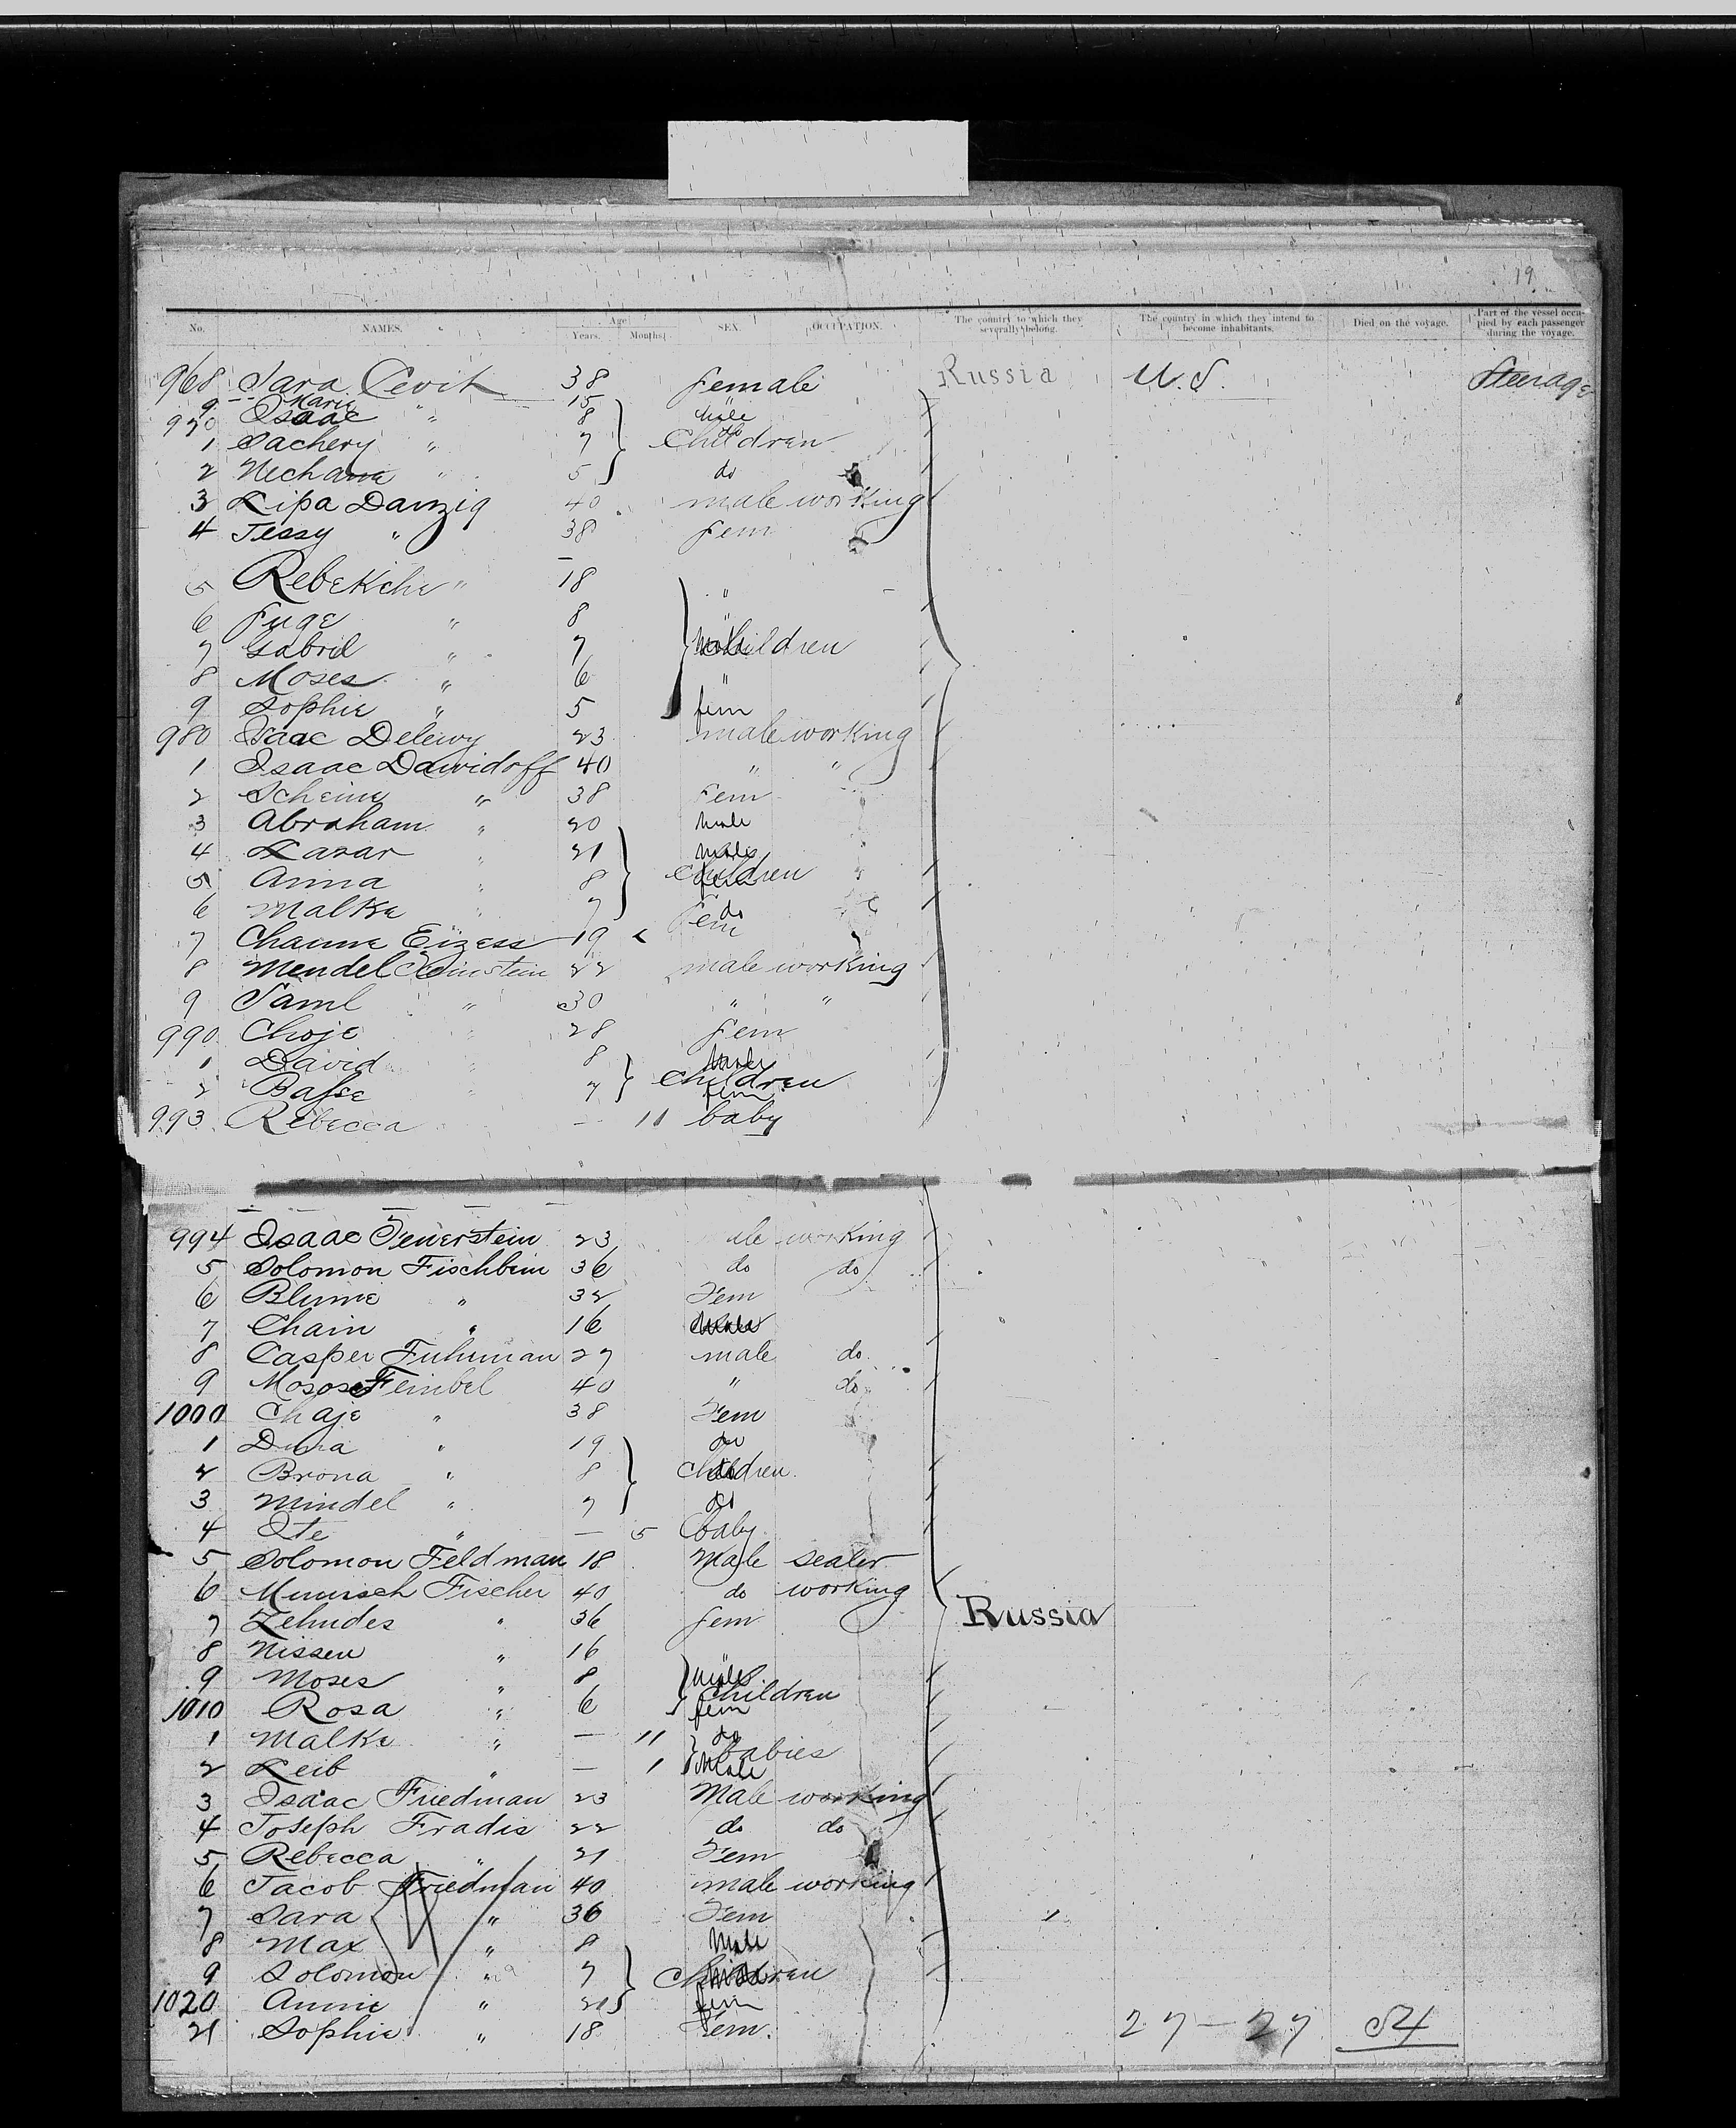 19
No. NAMES. Age Years. Months. SEX. OCCUPATION. The country to which they severally belong. The country in which they intend to become inhabitants. Died on the voyage. Part of the vessel occupied by each passenger during the voyage.
968 Sara Levit 38 female Russia U.S. Steerage
9 Marie " 15 "
970 Isaac " 8 Male
1 Sachery " 7 Children do
2 Nechama " 5 do
3 Lipa Danzig 40 male working
4 Jessy " 38 fem
5 Rebekche " 18 "
6 Fuge " 8 "
7 Gabril " 7 male children
8 Moses " 6 "
9 Sophie " 5 fem
980 Isaac Delewy 23 male working
1 Isaac Dawidoff 40 " "
2 Scheine " 38 Fem
3 Abraham " 20 Male
4 Lazar " 21 Male
5 Anna " 8 Children fem
6 Malke " 7 do
7 Chaune Eizess 19 Fem
8 Mendel Einstein 22 male working
9 Saml " 30 " "
990 Choje " 28 fem
1 David " 8 Male
2 Basse " 7 Children fem
993 Rebecca — 11 baby
994 Isaac Feuerstein 23 working
5 Solomon Fischbein 36 do do
6 Blume " 32 Fem
7 Chain " 16 Male
8 Casper Fuhrman 27 male do
9 Moses Feinbel 40 " do
1000 Chaje " 38 Fem
1 Dina " 19 do
2 Brona " 8 children do
3 Mindel " 7 do
4 Ite " — 5 baby
5 Solomon Feldman 18 Male sealer
6 Fischer 40 do working
7 Zehudes " 36 fem Russia
8 Nissen " 16
9 Moses " 8 Male
1010 Rosa " 6 children fem
1 Malke " — 11 do
2 Leib " — 1 babies Male
3 Isaac Friedman 23 Male working
4 Joseph Fradis 22 do do
5 Rebecca " 21 Fem
6 Jacob Friedman 40 male working
7 Sara " 36 Fem
8 Max " 8 Male
9 Solomon " 7 Children
1020 Annie " fem
21 Sophie " 18 Fem.
27 — 27 54